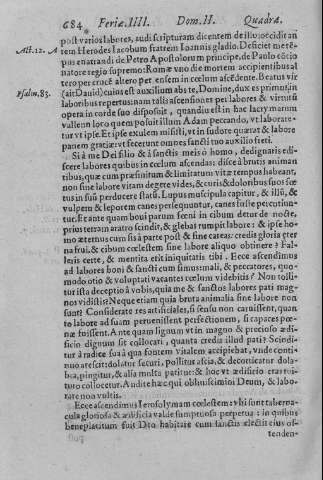 684 Feriæ IIII. Dom. II. Quadra.
post varios labores, audi scripturam dicentem de illo: occidit au
Act. 12. A tem Herodes Iacobum fratrem Ioannis gladio. Desiciet me tem
pus enatrandi de Petro Apostolorum principe, de Paulo cōcio
natore regio supremo: Romæ vno die mortem accipientibus al
tero per crucē altero per ensem in cœlum ascēdente. Beatus vir
Psalm. 83. (ait Dauid) cuius est auxilium abs te, Domine, dux es primus, in
laboribus repertus: nam talis ascensiones per labores & virtutū
opera in corde suo disposuit, quando est in hac lacrymarum
vallem loco quem posuit illum Adam peccando, vt laborare
tur vt ipse. Et ipse exulem misisti, vt in sudore quærat & labore
panem gratiæ: vt fecerunt omnes sancti tuo auxilio freti.
Si à me Dei filio & à sanctis meis ò homo, dedignaris edi
scere labores quibus in cœlum ascendas: disce à brutis animan
tibus, quæ cum præsinitum & limitatum vitæ tempus habeant,
non sine labore vitam degere vides, & curis & doloribus suos fœ
tus in suū perducere statū. Lupus muscipula capitur, & illū, &
vulpem & leporem canes persequuntur, canes fuste percutiun-
tur. Et ante quam boui parum fœni in cibum detur de nocte,
prius terram aratro scindit, & glebas rumpit labore: & ipse ho-
mo æternus cum sis à parte post & sine cæteas: credis gloria æter
na frui, & cibum cœlestem sine labore aliquo obtinere? Fal-
leris certe, & mentita est iniquitas tibi. Ecce ascendimus
ad labores boni & sancti cum simus: mali, & peccatores, quo-
modo otio & voluptati vacantes cœlum videbitis? Non tolli-
tur ista deceptio à vobis, quia me & sanctos labores pati mag-
nos vidistis? Neque etiam quia bruta animalia sine labore non
sunt? Considerate res artificiales, si sensu non carnissent, quan
to labore ad suam peruenissent perfectionem, si capaces pœ-
næ fuissent. Ante quam lignum vt in magno & precioso ædi-
ficio dignum sit collocari, quanta credis illud pati? Scindi-
tur à radice sua à qua fontem vitalem accipiebat, vnde conti-
nuo arescit: dolatur securi, pollitur ascia, & decorticatur dola-
bra, pingitur, & alia multa patitur: & hoc vt ædificio crasti-
tuto collocetur. Audite hæc qui obliuiscimini Deum, & labo-
tare non vultis.
Ecce ascendimus Ierosolymam cœlestem: vbi sunt taberna-
cula gloriosa & ædificia valde sumptuosa perpetua: in quibus
beneplacitum fuit Deo habitare cum sanctis electis eius os-
tenden-